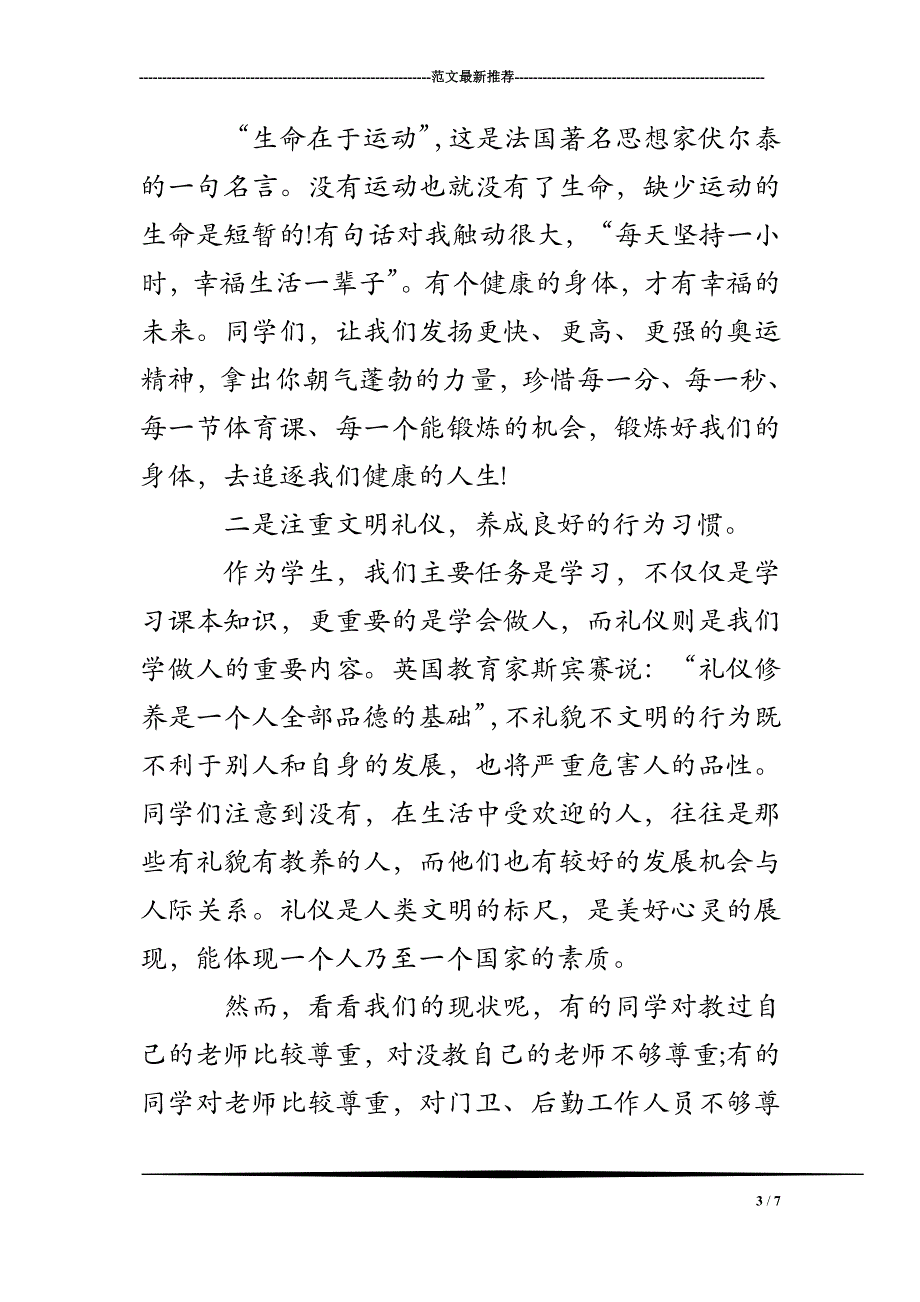 ---------------------------------------------------------------范文最新推荐------------------------------------------------------
“生命在于运动”，这是法国著名思想家伏尔泰
的一句名言。没有运动也就没有了生命，缺少运动的
生命是短暂的!有句话对我触动很大，“每天坚持一小
时，幸福生活一辈子”。有个健康的身体，才有幸福的
未来。同学们，让我们发扬更快、更高、更强的奥运
精神，拿出你朝气蓬勃的力量，珍惜每一分、每一秒、
每一节体育课、每一个能锻炼的机会，锻炼好我们的
身体，去追逐我们健康的人生!
二是注重文明礼仪，养成良好的行为习惯。
作为学生，我们主要任务是学习，不仅仅是学
习课本知识，更重要的是学会做人，而礼仪则是我们
学做人的重要内容。英国教育家斯宾赛说：“礼仪修
养是一个人全部品德的基础”，不礼貌不文明的行为既
不利于别人和自身的发展，也将严重危害人的品性。
同学们注意到没有，在生活中受欢迎的人，往往是那
些有礼貌有教养的人，而他们也有较好的发展机会与
人际关系。礼仪是人类文明的标尺，是美好心灵的展
现，能体现一个人乃至一个国家的素质。
然而，看看我们的现状呢，有的同学对教过自
己的老师比较尊重，对没教自己的老师不够尊重;有的
同学对老师比较尊重，对门卫、后勤工作人员不够尊
3 / 7